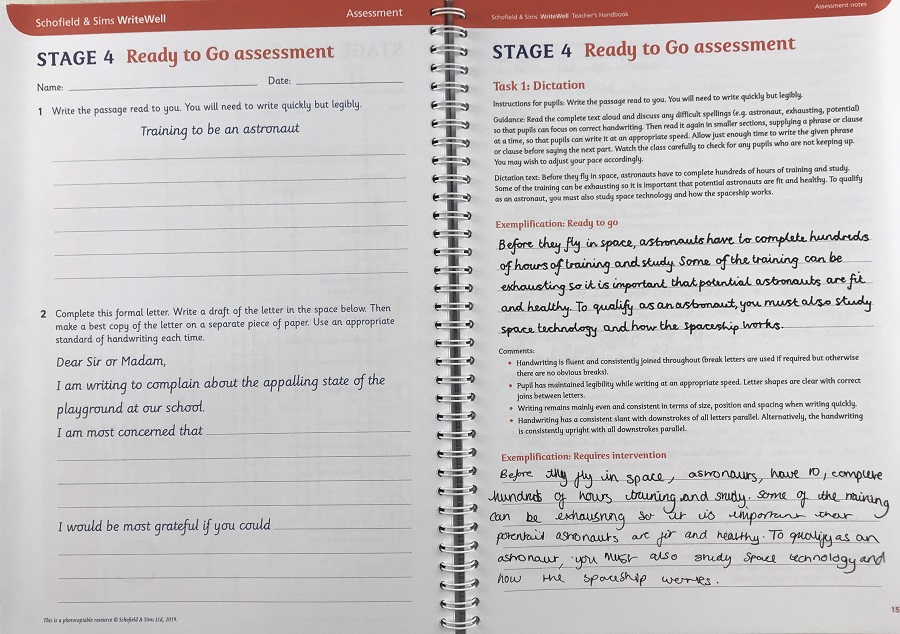 Schofield & Sims WriteWell
Assessment
STAGE 4 Ready to Go assessment
Name:
Date:
1 Write the passage read to you. You will need to write quickly but legibly.
Training to be an astronaut
2 Complete this formal letter. Write a draft of the letter in the space below. Then
make a best copy of the letter on a separate piece of paper. Use an appropriate
standard of handwriting each time.
Dear Sir or Madam,
I am writing to complain about the appalling state of the
playground at our school.
I am most concerned that
I would be most grateful if you could
This is a photocopiable resource © Schofield & Sims Ltd, 2019.
Schofield & Sims WriteWell Teacher's Handbook
Assessment notes
STAGE 4 Ready to Go assessment
Task 1: Dictation
Instructions for pupils: Write the passage read to you. You will need to write quickly but legibly.
Guidance: Read the complete text aloud and discuss any difficult spellings (e.g. astronaut, exhausting, potential)
so that pupils can focus on correct handwriting. Then read it again in smaller sections, supplying a phrase or clause
at a time, so that pupils can write it at an appropriate speed. Allow just enough time to write the given phrase
or clause before saying the next part. Watch the class carefully to check for any pupils who are not keeping up.
You may wish to adjust your pace accordingly.
Dictation text: Before they fly in space, astronauts have to complete hundreds of hours of training and study.
Some of the training can be exhausting so it is important that potential astronauts are fit and healthy. To qualify
as an astronaut, you must also study space technology and how the spaceship works.
Exemplification: Ready to go
Before they fly in space, astronauts have to complete hundreds
of hours of training and study. Some of the training can be
exhausting so it is important that potential astronauts are fit
and healthy. To qualify as an astronaut, you must also study
space technology and how the spaceship works.
Comments:
• Handwriting is fluent and consistently joined throughout (break letters are used if required but otherwise
there are no obvious breaks).
• Pupil has maintained legibility while writing at an appropriate speed. Letter shapes are clear with correct
joins between letters.
• Writing remains mainly even and consistent in terms of size, position and spacing when writing quickly.
• Handwriting has a consistent slant with downstrokes of all letters parallel. Alternatively, the handwriting
is consistently upright with all downstrokes parallel.
Exemplification: Requires intervention
Before they fly in space, astronauts, have to, complete
hundreds of hours training and study. Some of the training
can be exhausting so it is important that
potential astronauts are fit and healthy. To qualify as an
astronaut, you must also study space technology and
how the spaceship works.
15